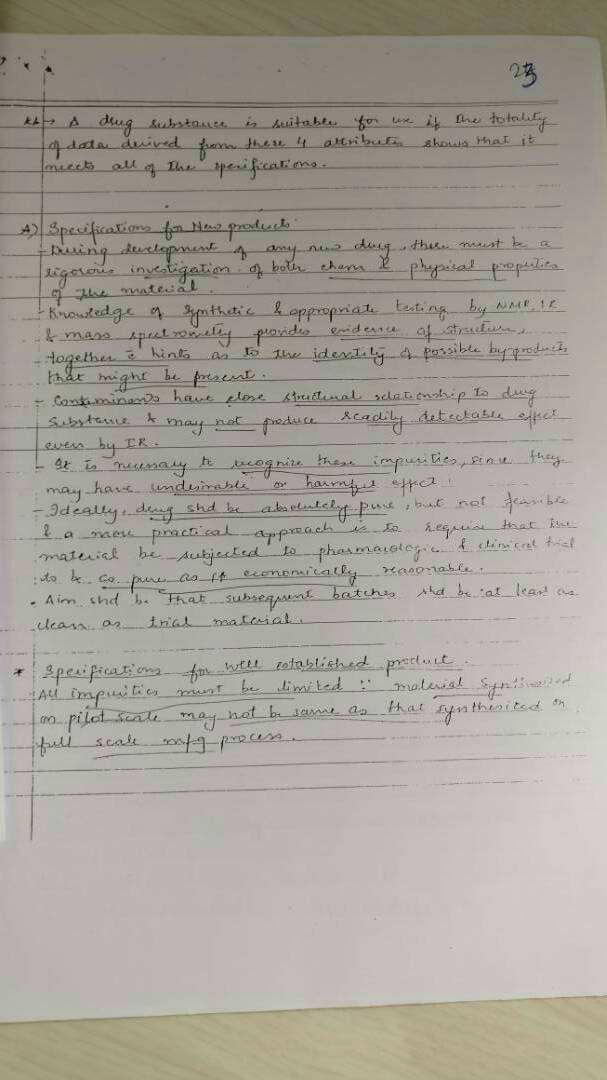 23
** → A drug substance is suitable for use if the totality
of data derived from these 4 attributes shows that it
meets all of the specifications.
A) Specifications for New products
- During development of any new drug, there must be a
rigorous investigation of both chem & physical properties
of the material.
- Knowledge of synthetic & appropriate testing by NMR, IR
& mass spectrometry provides evidence of structure,
together c̄ hints as to the identity of possible by-products
that might be present.
- Contaminants have close structural relationship to drug
substance & may not produce readily detectable effect
even by IR.
- It is necessary to recognize these impurities, since they
may have undesirable or harmful effect.
- Ideally, drug shd be absolutely pure, but not feasible
& a more practical approach is to require that the
material be subjected to pharmacologic & clinical trial
to be as pure as is economically reasonable.
• Aim shd be that subsequent batches shd be at least as
clean as trial material.
* Specifications for well established product.
All impurities must be limited ∵ material synthesized
on pilot scale may not be same as that synthesized on
full scale mfg process.